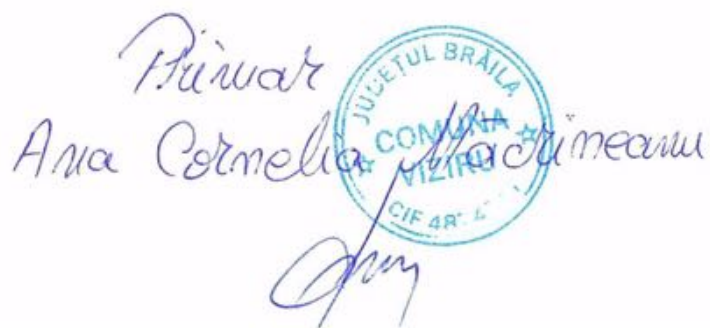 Primar
Ana Cornelia Mădrineanu
JUDEȚUL BRĂILA
COMUNA
VIZIRU
CIF